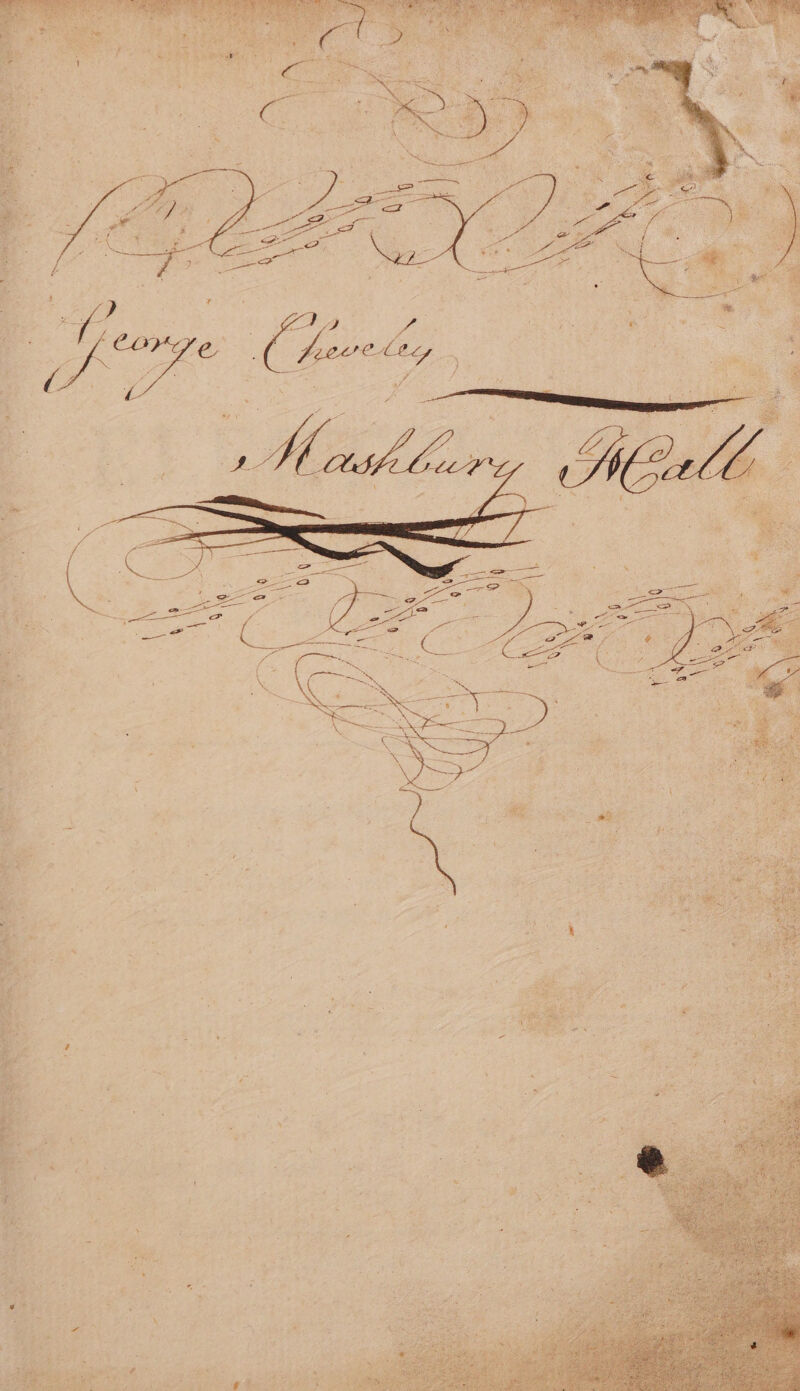 George Cheveley
Mashbury Hall